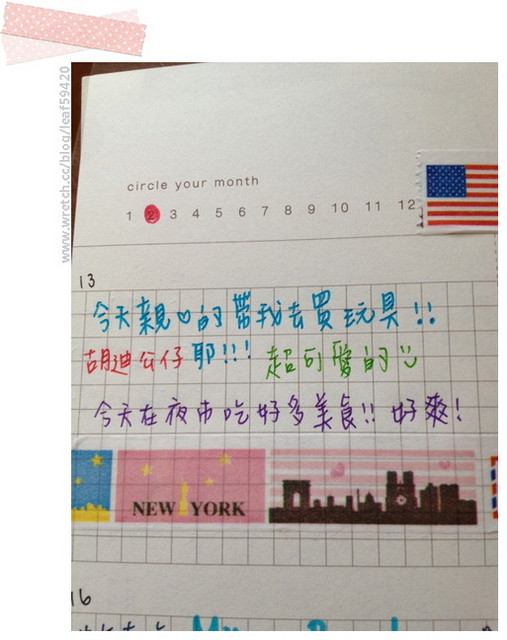 www.wretch.cc/blog/leaf59420
circle your month
1 2 3 4 5 6 7 8 9 10 11 12
13
今天親♡的帶我去買玩具!!
胡迪公仔 耶!!! 超可愛的
今天在夜市吃好多美食!! 好爽!
NEW YORK
16